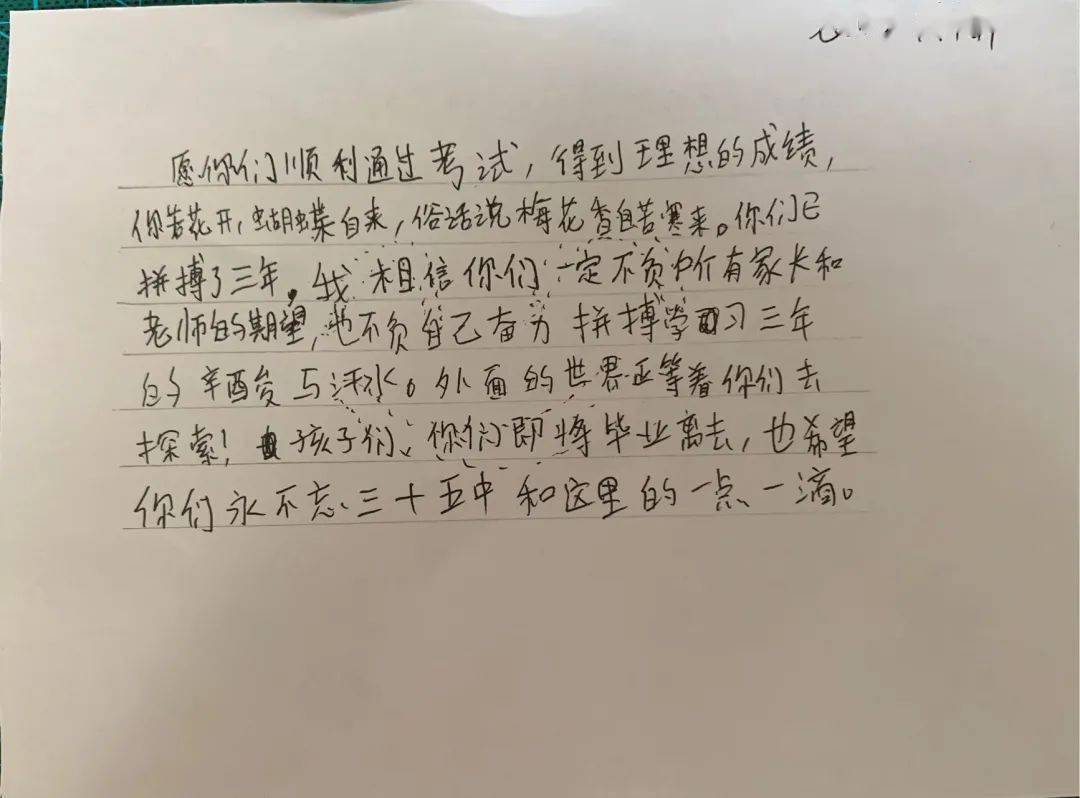 愿你们顺利通过考试，得到理想的成绩，
你若花开，蝴蝶自来，俗话说梅花香自苦寒来。你们已
拼搏了三年。我相信你们一定不负所有家长和
老师的期望，也不负自己奋力拼搏学习三年
的辛酸与汗水。外面的世界正等着你们去
探索！孩子们、你们即将毕业离去，也希望
你们永不忘三十五中和这里的一点一滴。